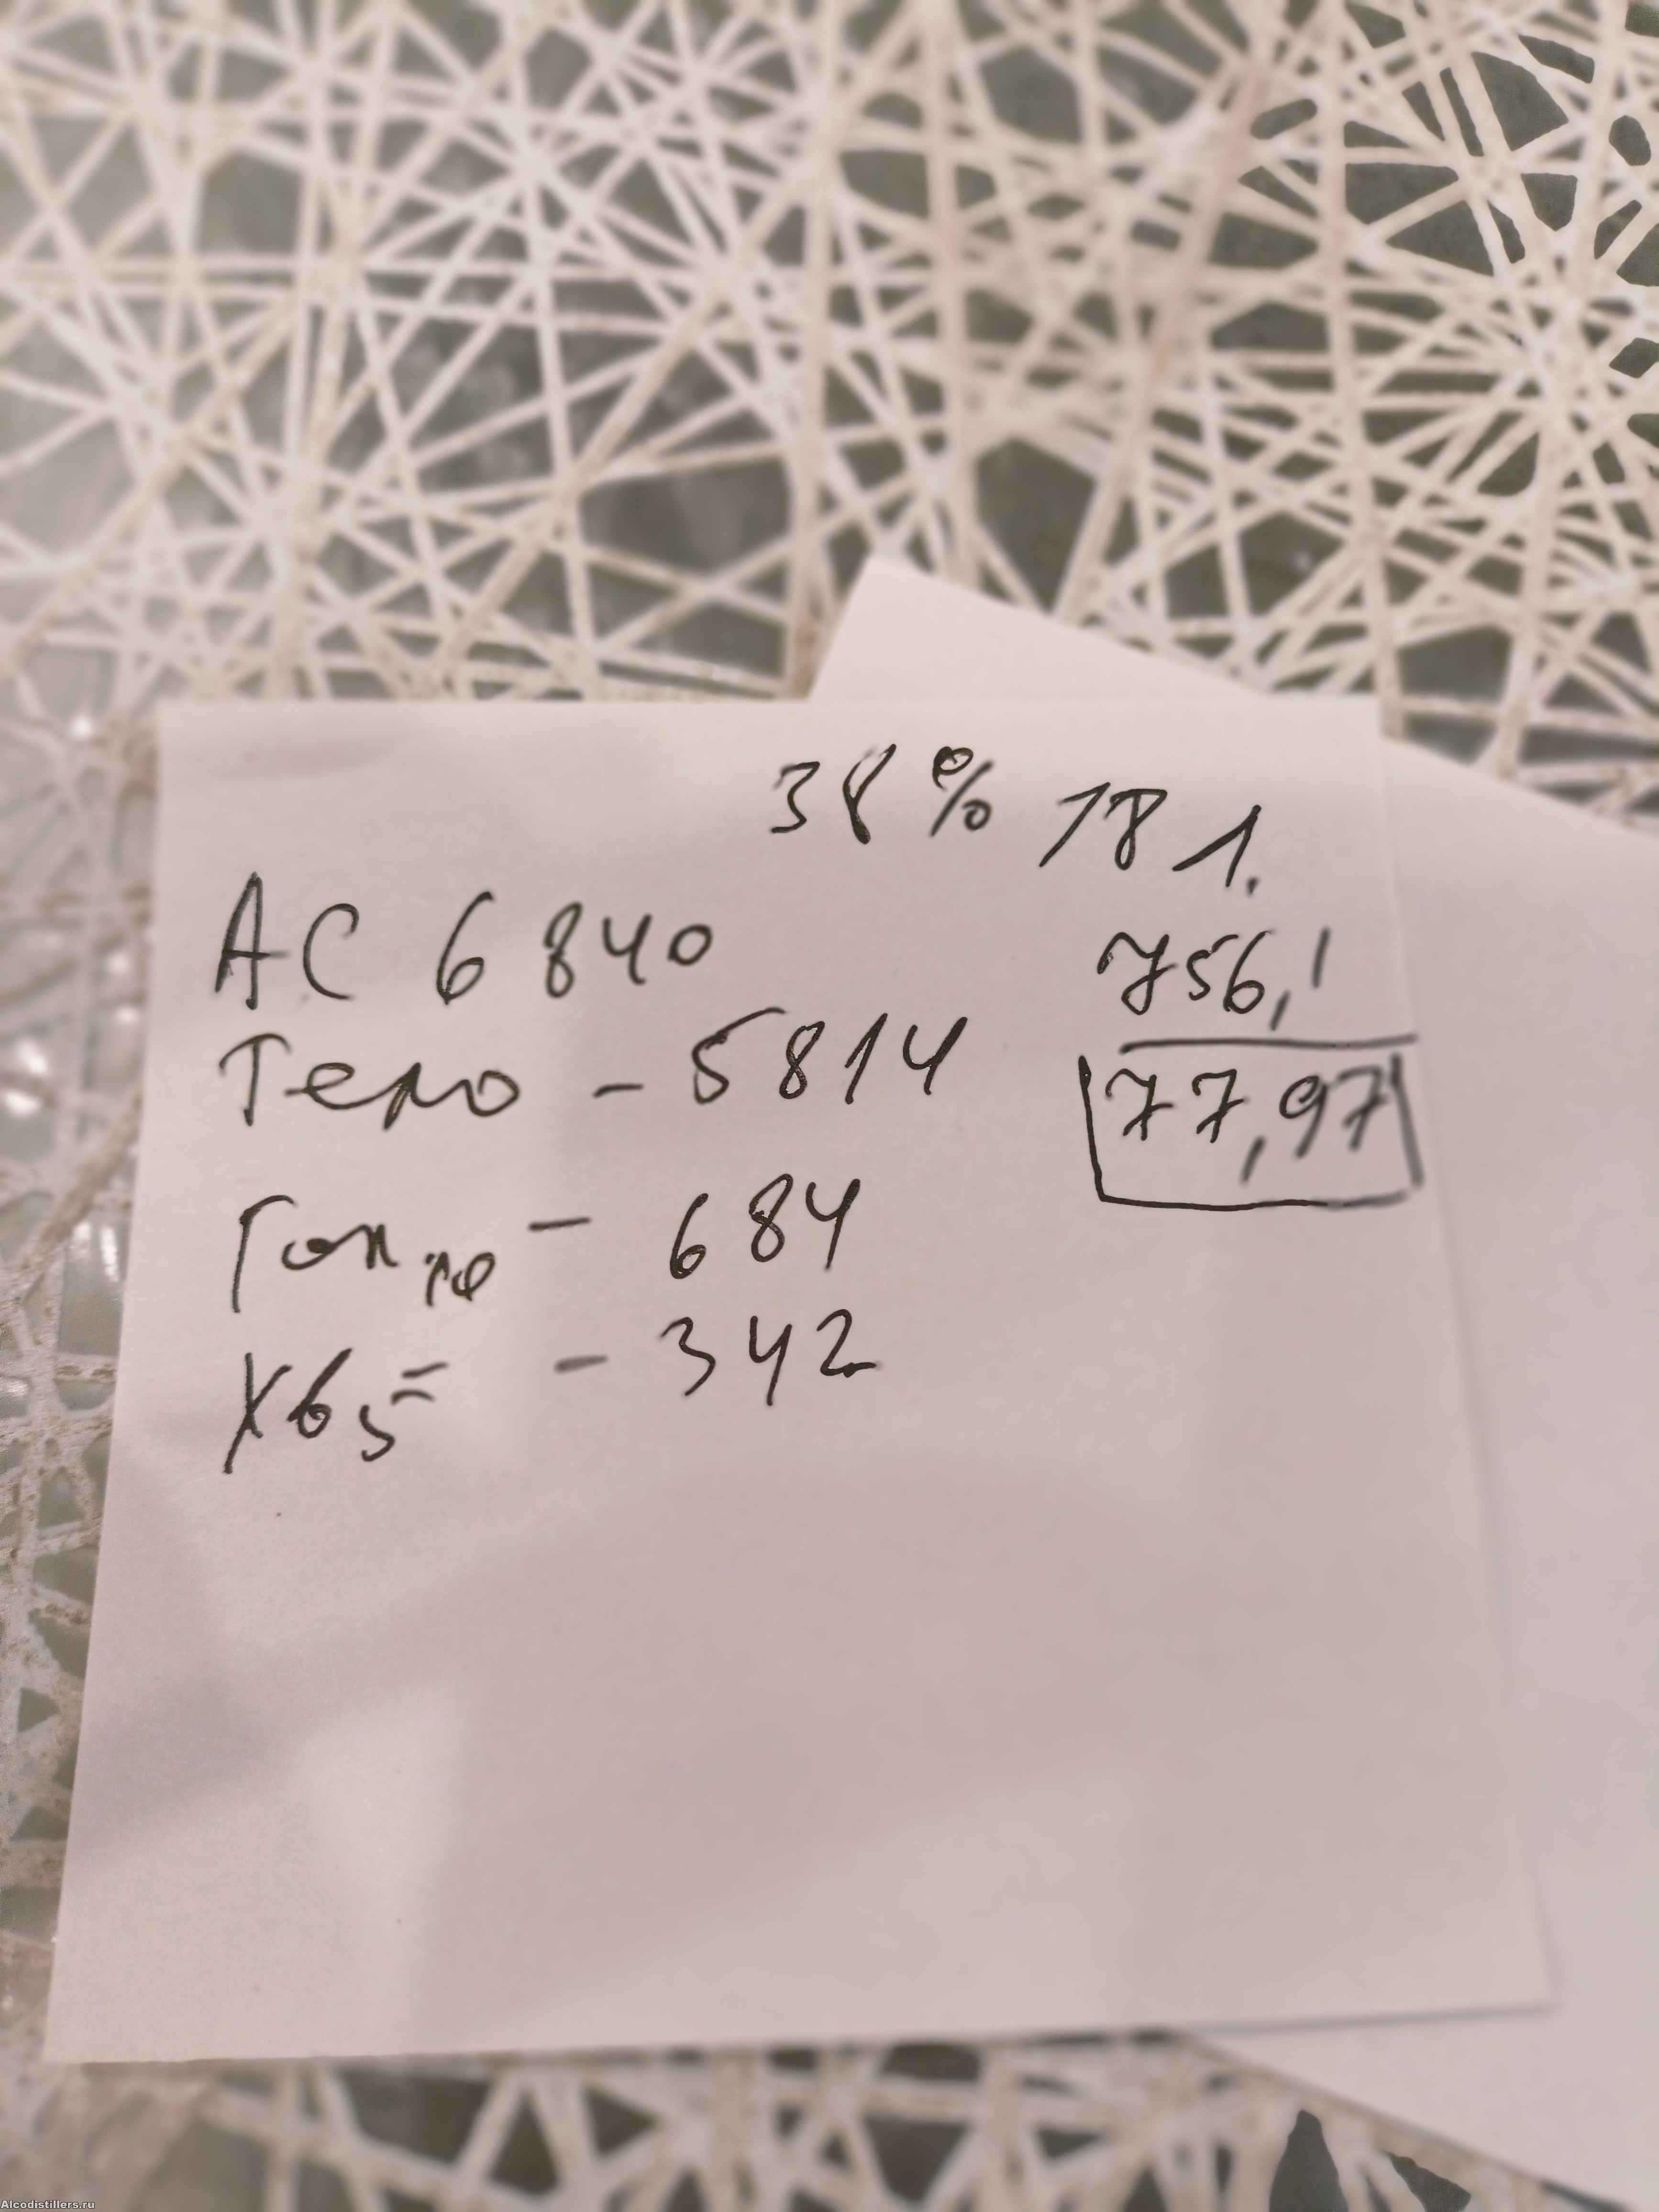 38% 18 л.
АС 6840
756,1
Тело - 5814
77,97
Гол 10 - 684
Хв 5 = - 342
Alcodistillers.ru